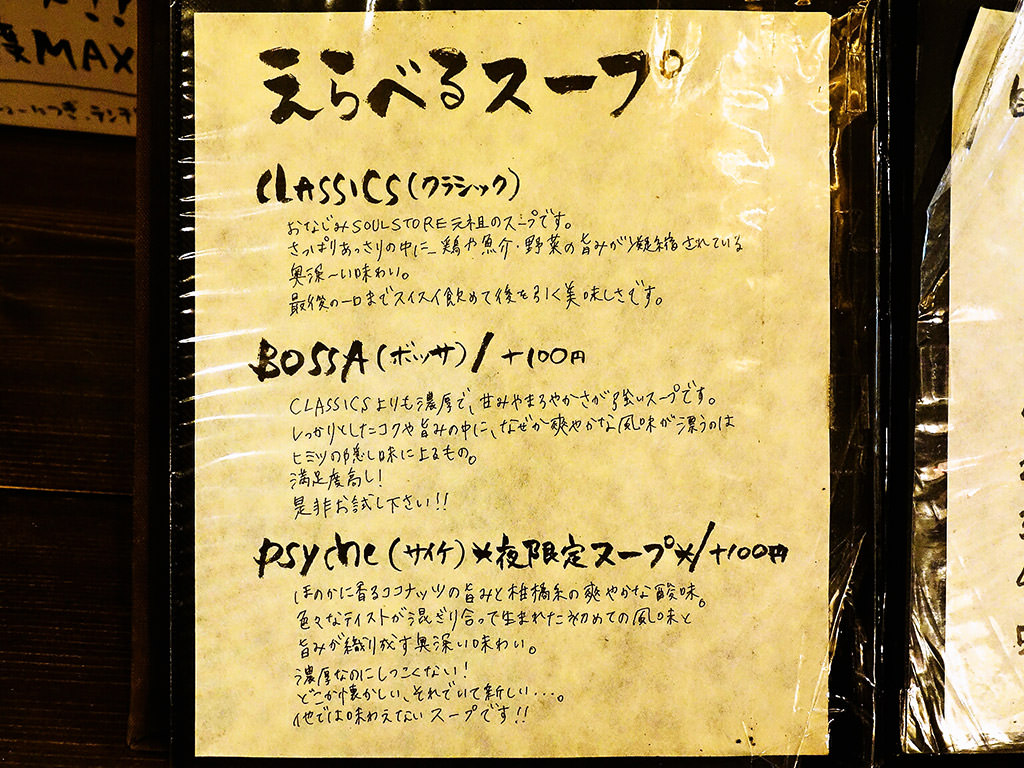 MAX
えらべるスープ
CLASSICS(クラシック)
おなじみSOULSTORE元祖のスープです。
さっぱりあっさりの中に、鶏や魚介・野菜の旨みが凝縮されている
奥深〜い味わい。
最後の一口までスイスイ飲めて後を引く美味しさです。
BOSSA(ボッサ)/+100円
CLASSICSよりも濃厚で、甘みやまろやかさが強いスープです。
しっかりとしたコクや旨みの中に、なぜか爽やかな風味が漂うのは
ヒミツの隠し味に上るもの。
満足度高し!
是非お試し下さい!!
psyche(サイケ)*夜限定スープ*/+100円
ほのかに香るココナッツの旨みと柑橘系の爽やかな酸味。
色々なテイストが混ざり合って生まれた初めての風味と
旨みが織り成す奥深い味わい。
濃厚なのにしつこくない!
どこか懐かしい、それでいて新しい・・・。
他では味わえないスープです!!